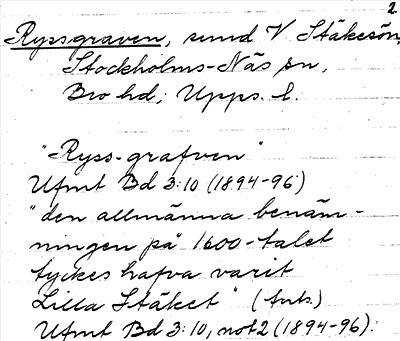 2
Ryssgraven, sund V Stäkesön,
Stockholms-Näs sn,
Bro hd, Upps. l.
"Ryss-grafven"
Ufmt Bd 3:10 (1894-96)
"den allmänna benäm-
ningen på 1600-talet
tyckes hafva varit
Lilla Stäket" (forts.)
Ufmt Bd 3:10, not 2 (1894-96).